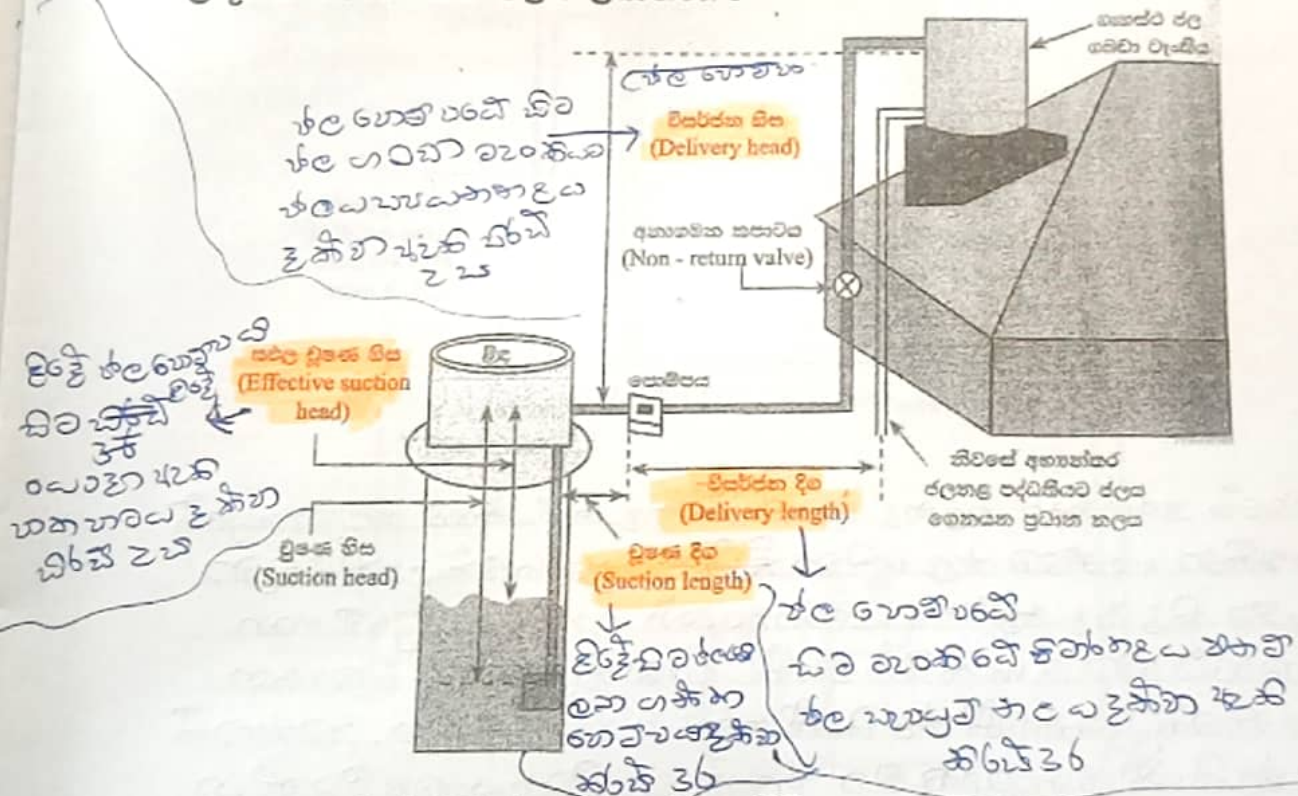 ගෘහස්ථ ජල
ගබඩා ටැංකිය
ජල පොම්පය
ජල පොම්පයේ සිට
ජල ගබඩා ටැංකියට
ජලය සපයන නළය
දක්වා ඇති සිරස්
උස
විසර්ජන හිස
(Delivery head)
අනාගමන කපාටය
(Non - return valve)
ළිඳේ ජල
සිට
ඇති
දක්වා
සිරස් උස
සඵල චූෂණ හිස
(Effective suction
head)
ළිඳ
පොම්පය
චූෂණ හිස
(Suction head)
විසර්ජන දිග
(Delivery length)
චූෂණ දිග
(Suction length)
නිවසේ අභ්‍යන්තර
ජලනළ පද්ධතියට ජලය
ගෙනයන ප්‍රධාන නලය
ළිඳේ සිට
ලබා ගන්නා
තිරස් දුර
ජල පොම්පයේ
සිට ටැංකියේ
ජල සැපයුම් නළය දක්වා ඇති
තිරස් දුර